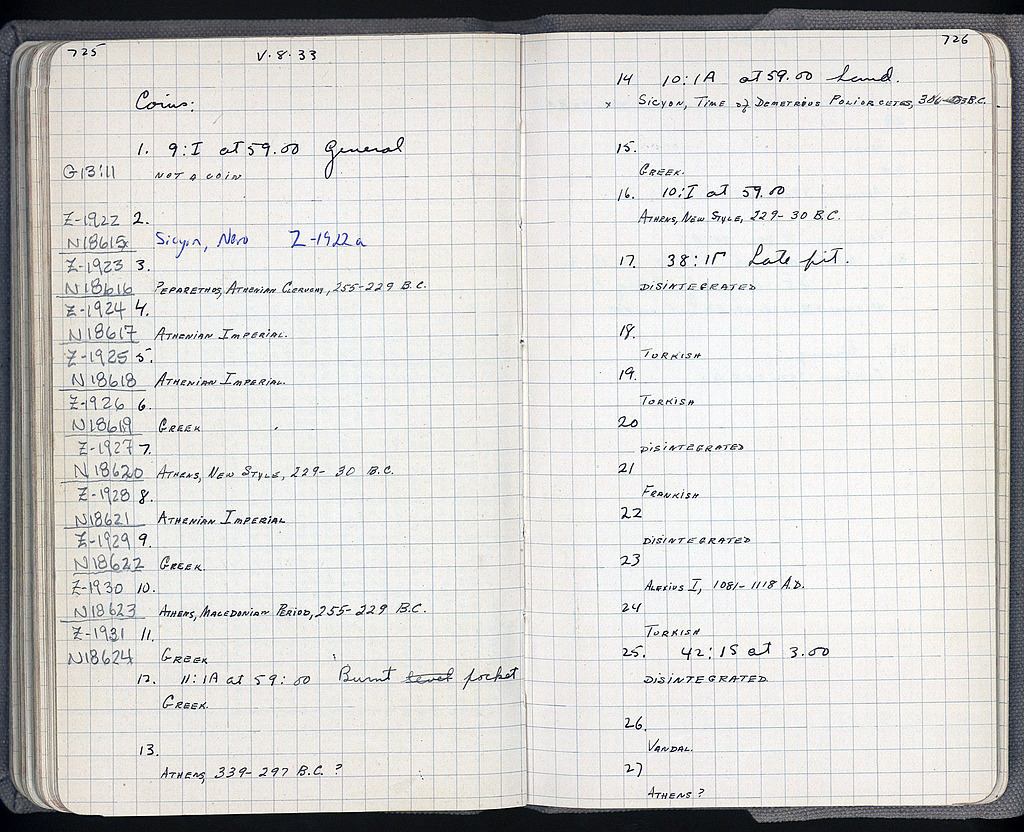 725
V.8.33
Coins:
1. 9:I at 59.00 General
G13:11 NOT A COIN
Z-1922 2.
N18615 Sicyon, Nero Z-1922a
Z-1923 3.
N18616 PEPARETHOS, ATHENIAN CLERUCHY, 255-229 B.C.
Z-1924 4.
N18617 ATHENIAN IMPERIAL.
Z-1925 5.
N18618 ATHENIAN IMPERIAL.
Z-1926 6.
N18619 GREEK
Z-1927 7.
N18620 ATHENS, NEW STYLE, 229-30 B.C.
Z-1928 8.
N18621 ATHENIAN IMPERIAL
Z-1929 9.
N18622 GREEK.
Z-1930 10.
N18623 ATHENS, MACEDONIAN PERIOD, 255-229 B.C.
Z-1931 11.
N18624 GREEK
12. 11:IA at 59:00 Burnt level pocket
GREEK.
13.
ATHENS, 339-297 B.C. ?
726
14 10:IA at 59.00
x SICYON, TIME of DEMETRIUS POLIORCETES, B.C.
15.
GREEK.
16. 10:I at 59.00
ATHENS, NEW STYLE, 229-30 B.C.
17. 38:IΓ Late pit.
DISINTEGRATED
18.
TURKISH
19.
TURKISH
20
DISINTEGRATED
21
FRANKISH
22
DISINTEGRATED
23
ALEXIUS I, 1081-1118 A.D.
24
TURKISH
25. 42:IS at 3.00
DISINTEGRATED
26.
VANDAL.
27
ATHENS ?